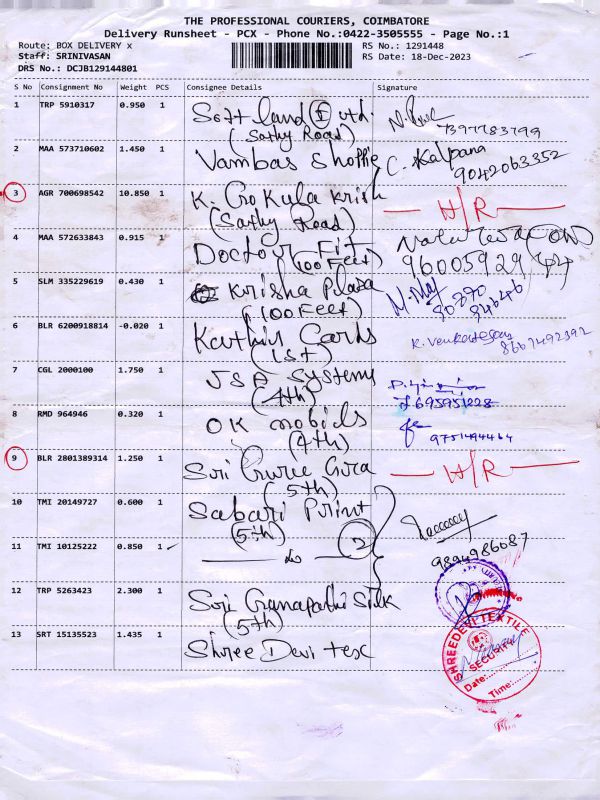 THE PROFESSIONAL COURIERS, COIMBATORE
Delivery Runsheet - PCX - Phone No.:0422-3505555 - Page No.:1
Route: BOX DELIVERY x
RS No.: 1291448
Staff: SRINIVASAN
RS Date: 18-Dec-2023
DRS No.: DCJB129144801
S No Consignment No Weight PCS Consignee Details Signature
1 TRP 5910317 0.950 1 Soft land (I) Ltd.
(Sathy Road)
7397783799
2 MAA 573710602 1.450 1 Vambas Shoffie C. Kalpana
9042063352
3 AGR 700698542 10.850 1 K. Gokula Krish
(Sathy Road)
H/R
4 MAA 572633843 0.915 1 Doctor Fit
(100 Feet)
9600592944
5 SLM 335229619 0.430 1 Krisha Plaza
(100 Feet)
80870
84646
6 BLR 6200918814 -0.020 1 Kathir Cards
(1st)
K. Venkatesan
8667492392
7 CGL 2000100 1.750 1 JSA Systems
(4th)
7695951228
8 RMD 964946 0.320 1 OK mobils
(4th)
9751494464
9 BLR 2801389314 1.250 1 Sri Guru Gira
(5th)
H/R
10 TMI 20149727 0.600 1 Sabari Print
(5th)
11 TMI 10125222 0.850 1 do 2
9894986087
12 TRP 5263423 2.300 1 Sri Ganapathi Silk
(5th)
13 SRT 15135523 1.435 1 Shree Devi tex
SHREEDEVI TEXTILE
SECURITY
Date:
Time: